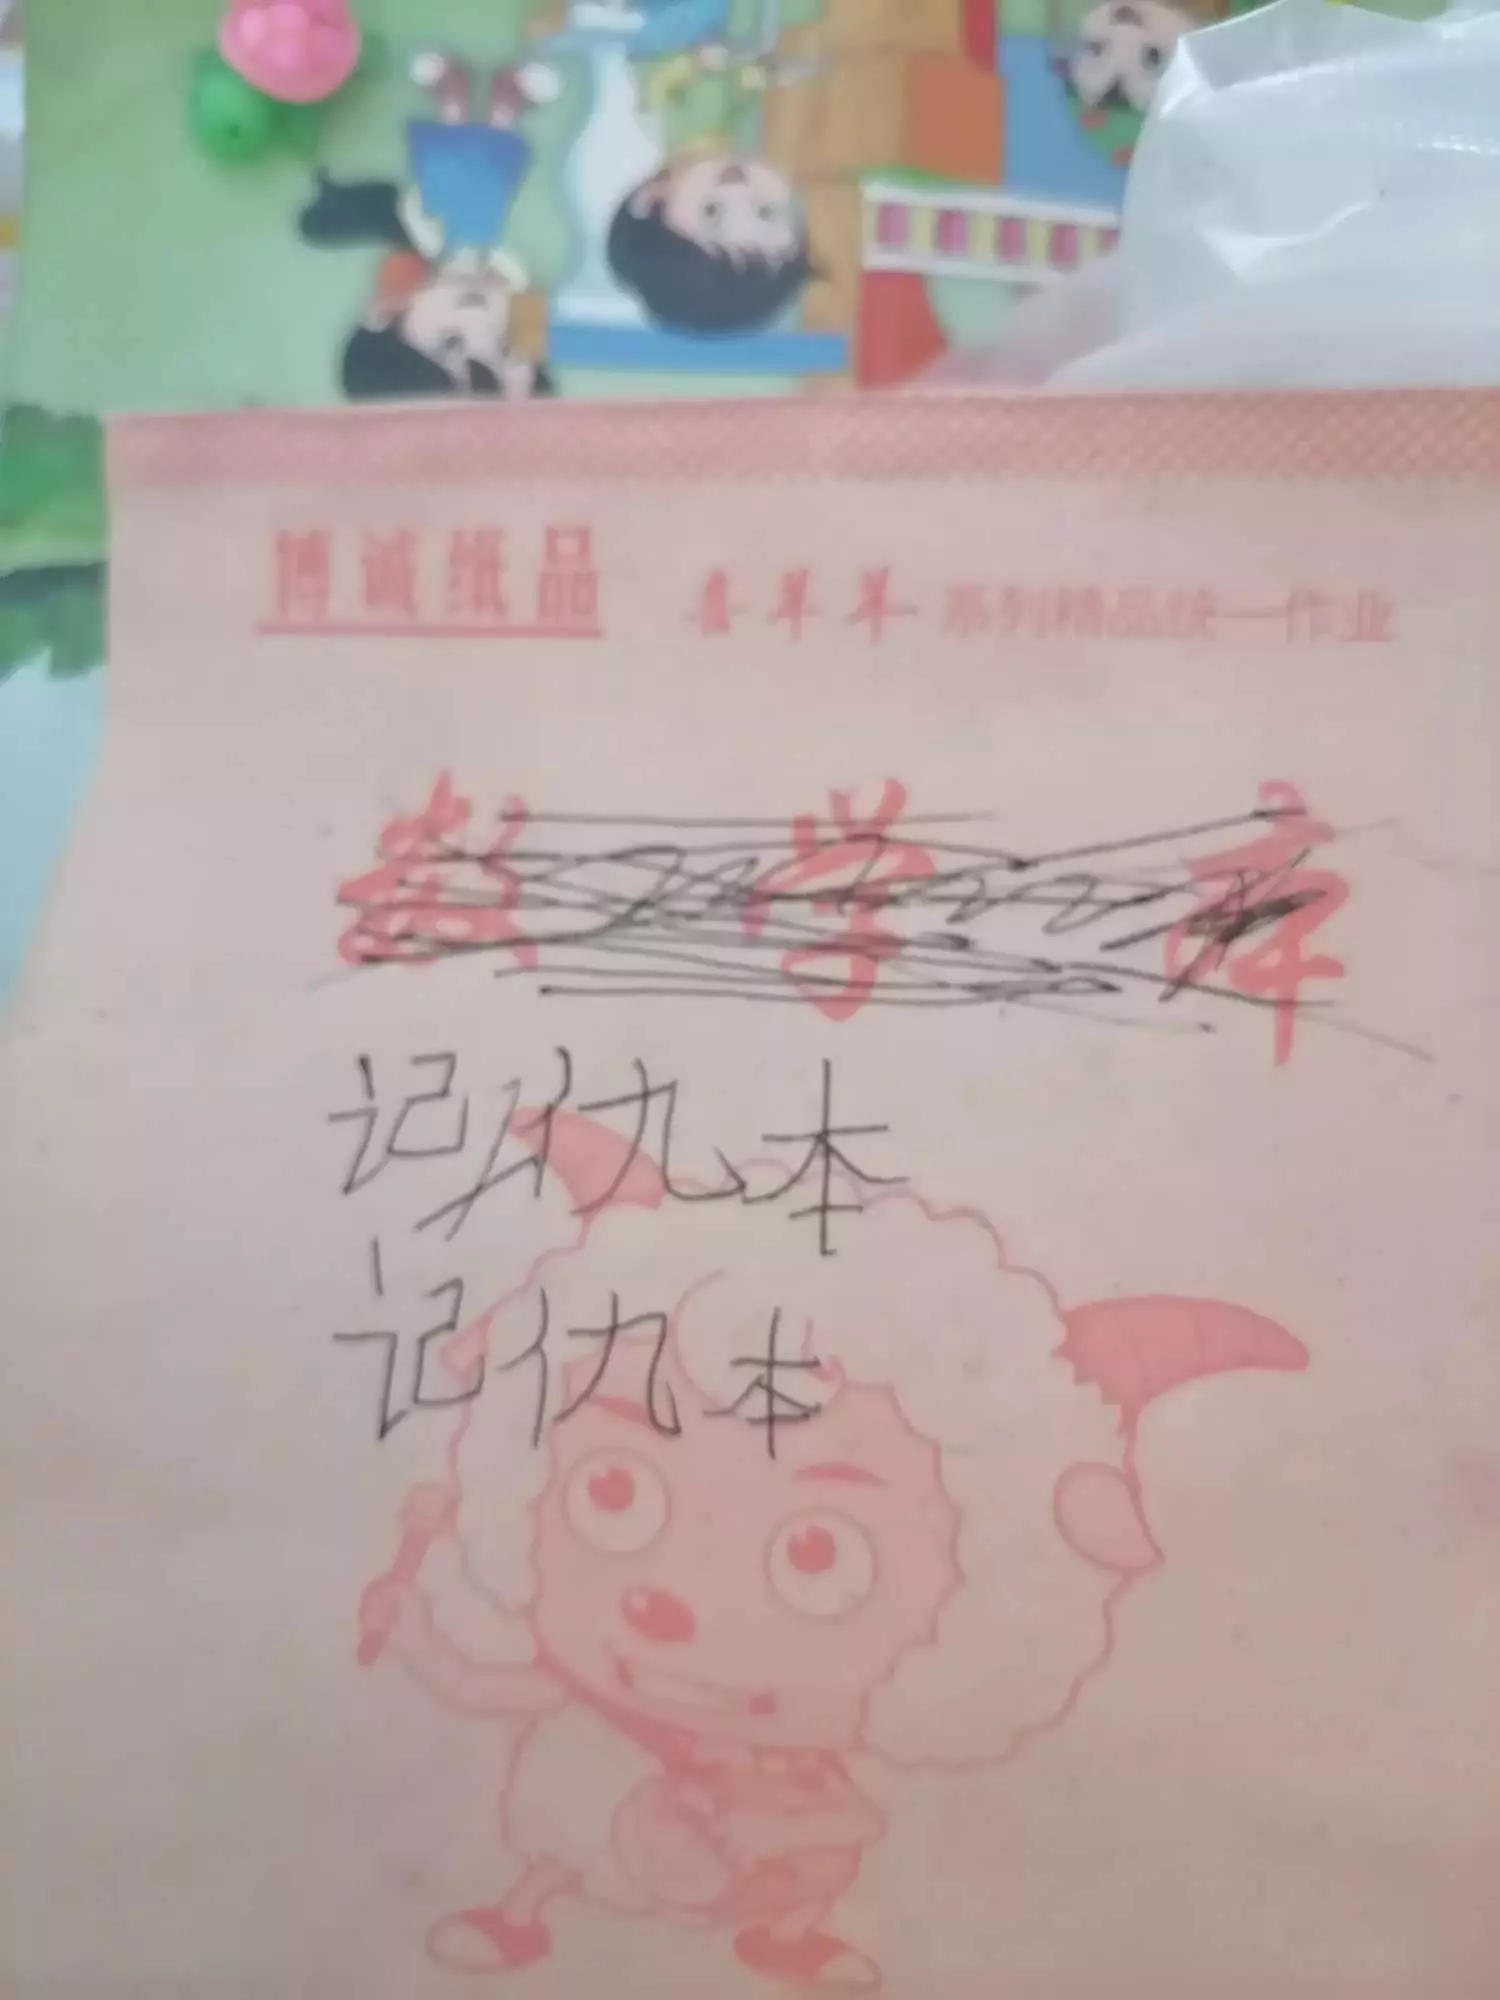 博诚纸品 喜羊羊 系列精品统一作业
数学本
记仇本
记仇本